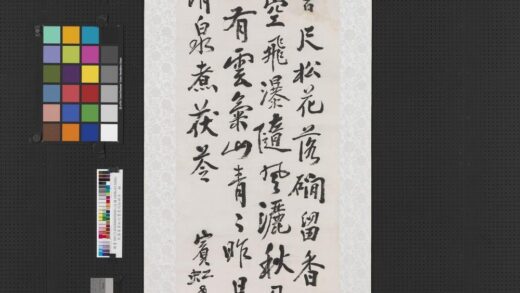 尺松花落磵留香
空飛瀑隨風灑秋
有雲氣山青〻昨
清泉煮茯苓
賓虹